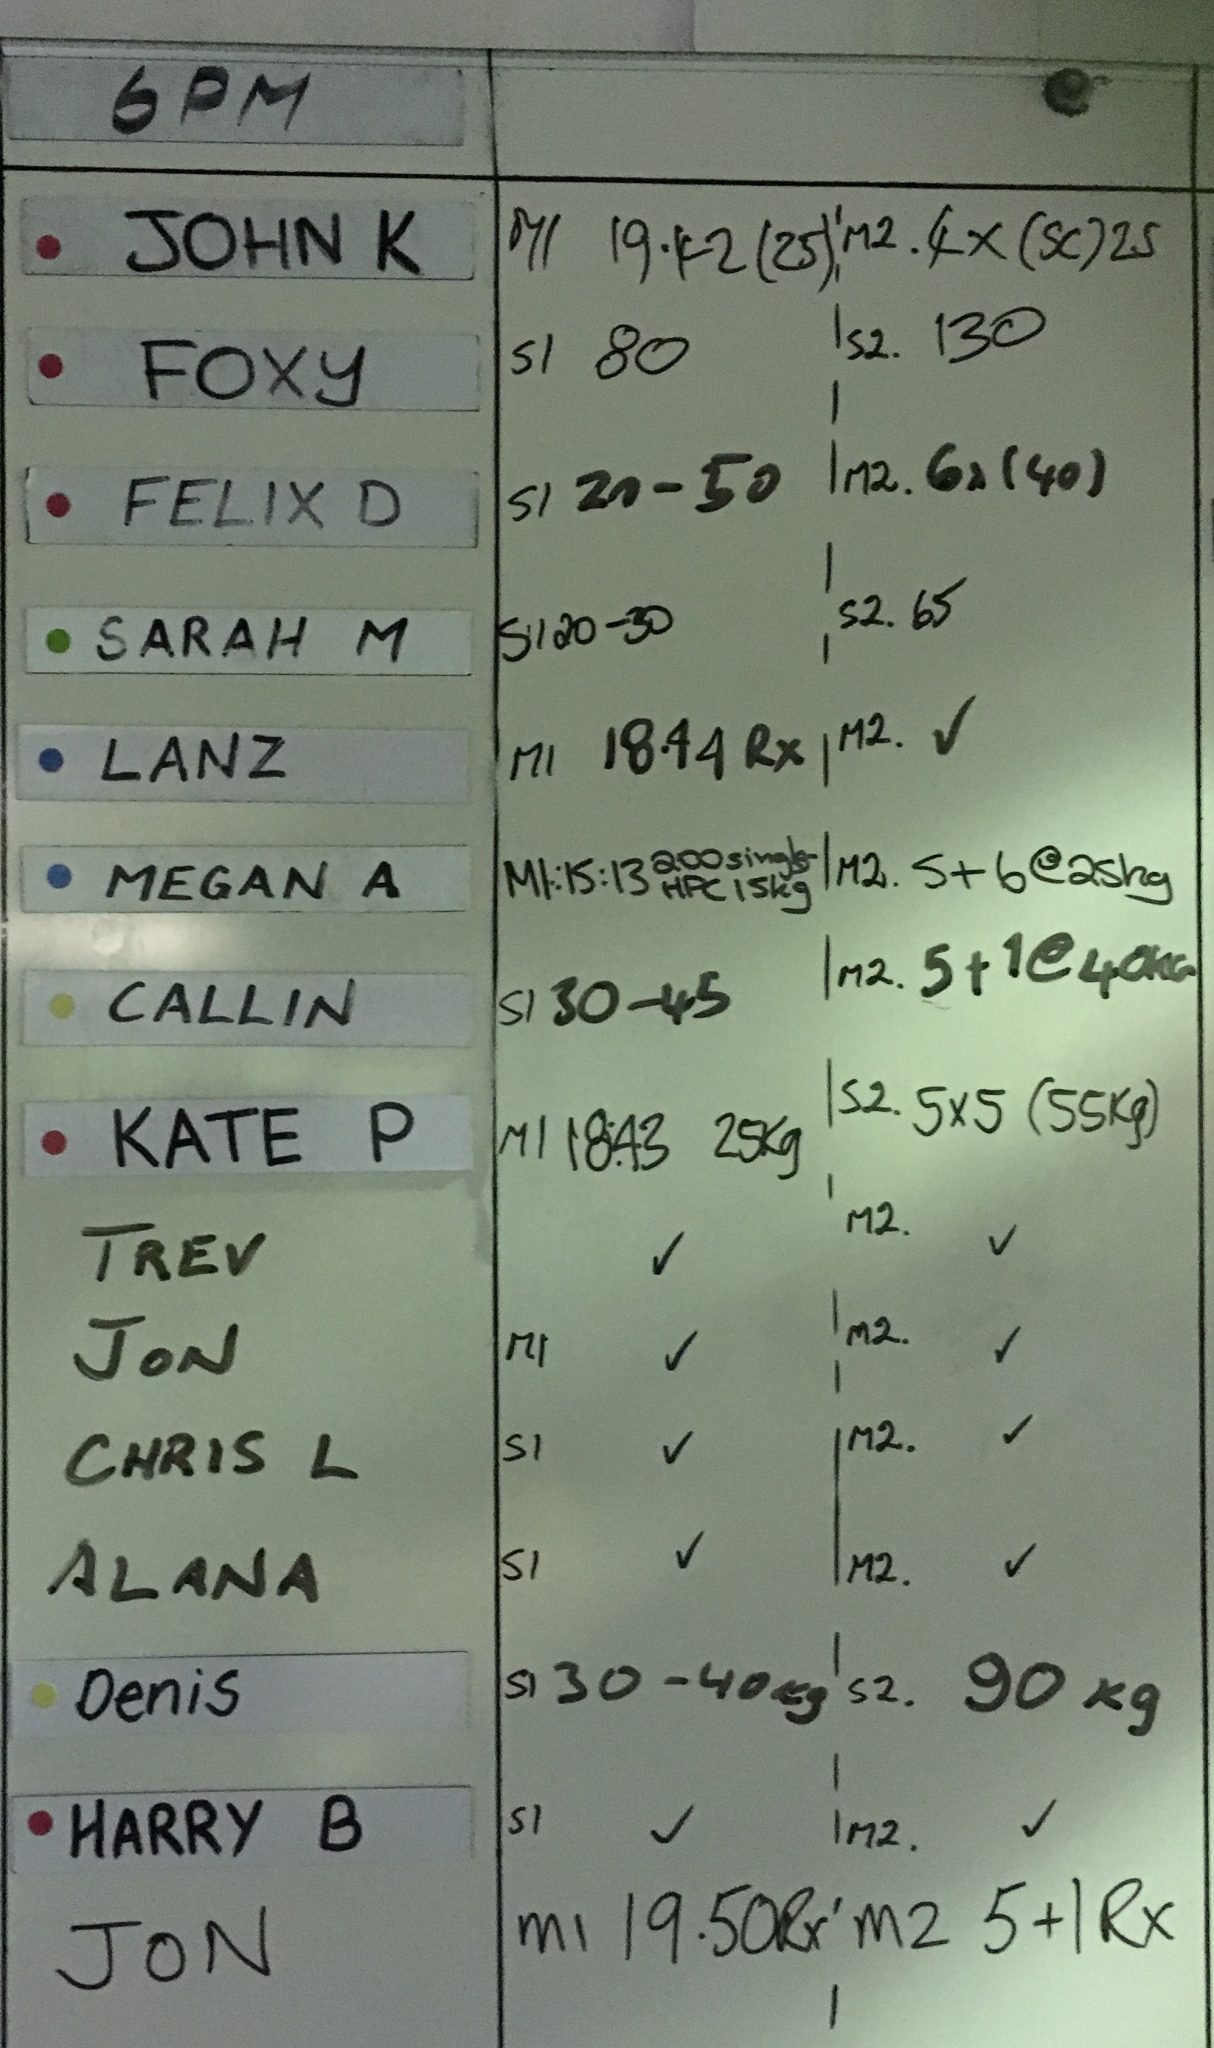 6PM
JOHN K M1 19.42 (25) M2. 4X (SC) 25
FOXY S1 80 S2. 130
FELIX D S1 20-50 M2. (40)
SARAH M S1 20-30 S2. 65
LANZ M1 18.44 Rx M2. ✓
MEGAN A M1:15:13 200 single M2. 5+6@25kg
HPC 15kg
CALLIN S1 30-45 M2. 5+1@40KG
KATE P M1 18:43 25Kg S2. 5x5 (55Kg)
TREV ✓ M2. ✓
JON M1 ✓ M2. ✓
CHRIS L S1 ✓ M2. ✓
ALANA S1 ✓ M2. ✓
Denis S1 30-40kg S2. 90 kg
HARRY B S1 ✓ M2. ✓
JON m1 19.50 Rx m2 5+1 Rx